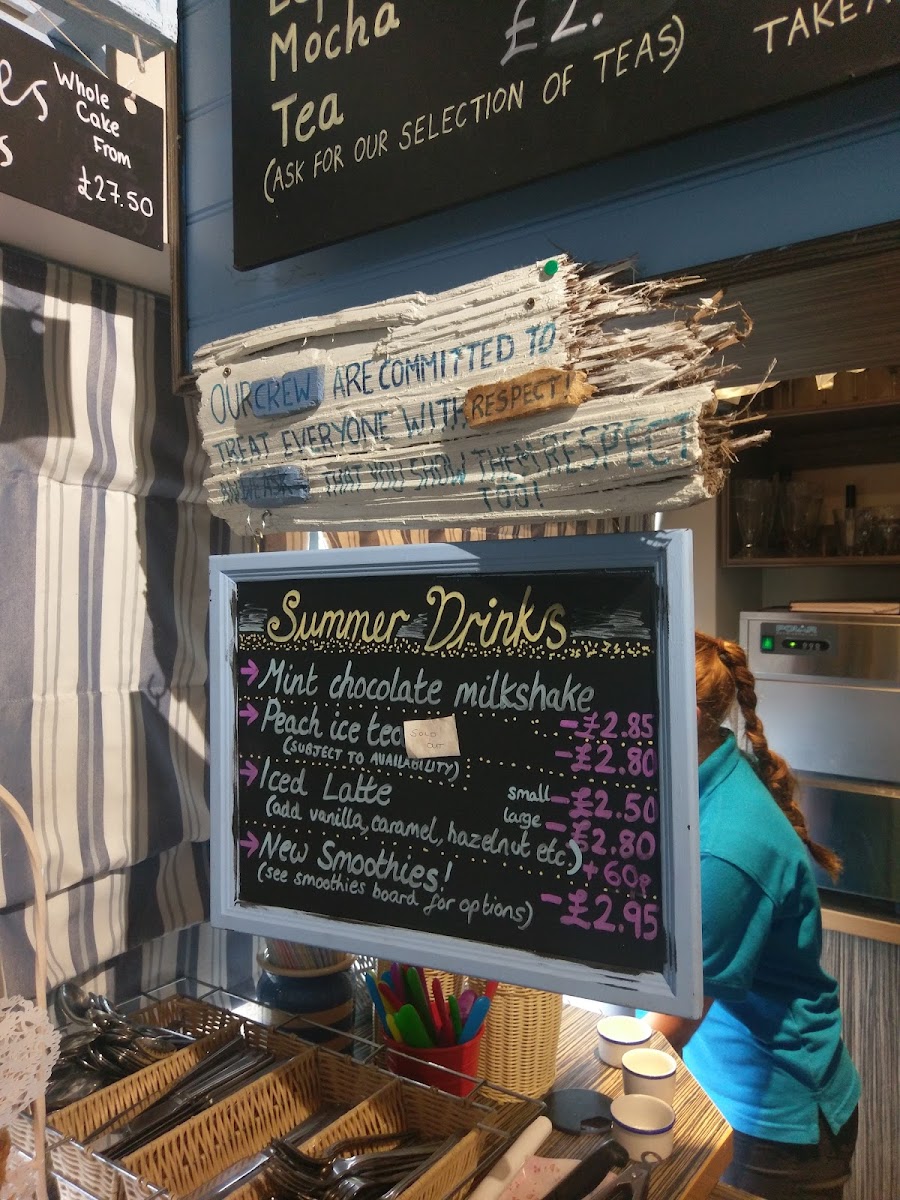 Mocha £2.
TAKEA
Tea
(ASK FOR OUR SELECTION OF TEAS)
Whole
Cake
From
£27.50
OUR CREW ARE COMMITTED TO
TREAT EVERYONE WITH RESPECT!
AND WE ASK THAT YOU SHOW THEM RESPECT
TOO!
Summer Drinks
→ Mint chocolate milkshake - £2.85
→ Peach ice tea - £2.80
SOLD
OUT
(SUBJECT TO AVAILABILITY)
→ Iced Latte small - £2.50
large - £2.80
(add vanilla, caramel, hazelnut etc.) + 60p
→ New Smoothies! - £2.95
(see smoothies board for options)
POLAR